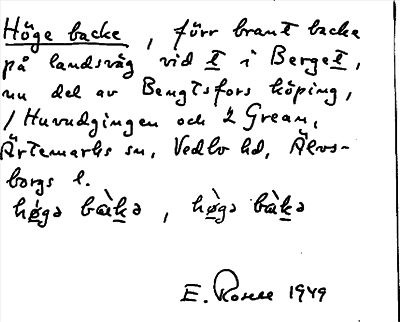 Höge backe, förr brant backe
på landsväg vid t i Berget,
nu del av Bengtsfors köping,
1 Huvudgingen och 2 Grean,
Ärtemarks sn, Vedbo hd, Älvs-
borgs l.
hø̀gə bàkə, hø̀gə bàkə
E. 1949